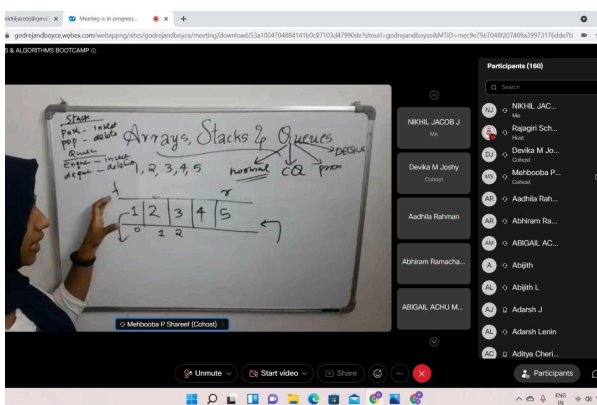 nikhiljacobj@gmai
Meeting is in progress...
godrejandboyce.webex.com/webappng/sites/godrejandboyce/meeting/download/53a1004704084141b0c87103d47990de?siteurl=godrejandboyce&MTID=mec9e79e7048f207489a39973176dde7b
S & ALGORITHMS BOOTCAMP
Stack
Push - insert
pop - delete
Queue
Enque - insert
deque - delete
Arrays, Stacks & Queues
1, 2, 3, 4, 5
normal CQ DEQUE
f r
1 2 3 4 5
0 1 2
Mehbooba P Shareef (Cohost)
NIKHIL JACOB J
Me
Devika M Joshy
Cohost
Aadhila Rahman
Abhiram Ramacha...
ABIGAIL ACHU M...
Participants (160)
Search
NJ NIKHIL JAC...
Me
Rajagiri Sch...
Host
DJ Devika M Jo...
Cohost
MS Mehbooba P...
Cohost
AR Aadhila Rah...
AR Abhiram Ra...
AM ABIGAIL AC...
A Abijith
AL Abijith L
AJ Adarsh J
AL Adarsh Lenin
AC Aditya Cheri...
Unmute
Start video
Share
Participants
ENG
IN